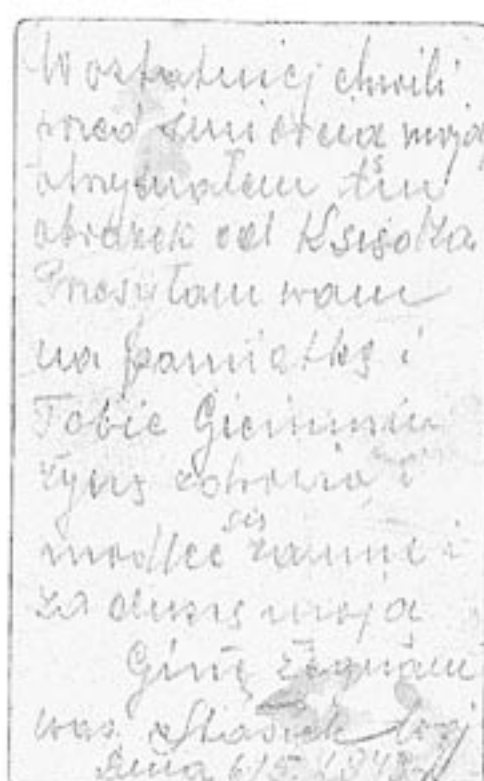 W ostatniej chwili
przed śmiercią moją
otrzymałem ten
obrazek od Księdza
Przesyłam wam
na pamiątkę i
Tobie
życzę zdrowia i
modlcie się za mnie i
za duszę moją
Ginę żegnam
was Stasiek
dnia 6/5